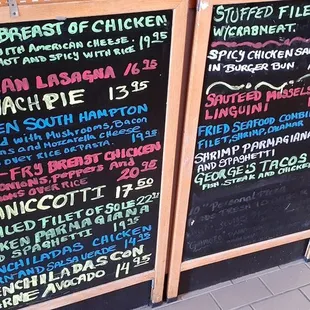 BREAST OF CHICKEN
WITH AMERICAN CHEESE. 19.95
AST AND SPICY WITH RICE
AN LASAGNA 16.95
ACH PIE 13.95
EN SOUTH HAMPTON
ED WITH MUSHROOMS, BACON
AS AND MOZZARELLA CHEESE
OVER RICE OR PASTA.
-FRY BREAST CHICKEN
ONIONS, PEPPERS AND
OOMS OVER RICE 20.95
NICCOTTI 17.50
LED FILET OF SOLE 22.95
KEN PARMAGIANA
D SPAGHETTI 19.95
NCHILADAS CHICKEN
AN AND SALSA VERDE 14.95
ENCHILADAS CON
RNE AVOCADO 14.95
STUFFED FILE
W/CRABMEAT.
SPICY CHICKEN SAN
IN BURGER BUN
SAUTEED MUSSELS
LINGUINI
FRIED SEAFOOD COMBIN
FILET, SHRIMP, CALAMAR
SHRIMP PARMAGIANA
AND SPAGHETTI
GEORGE'S TACOS
FISH STEAK AND CHICKEN